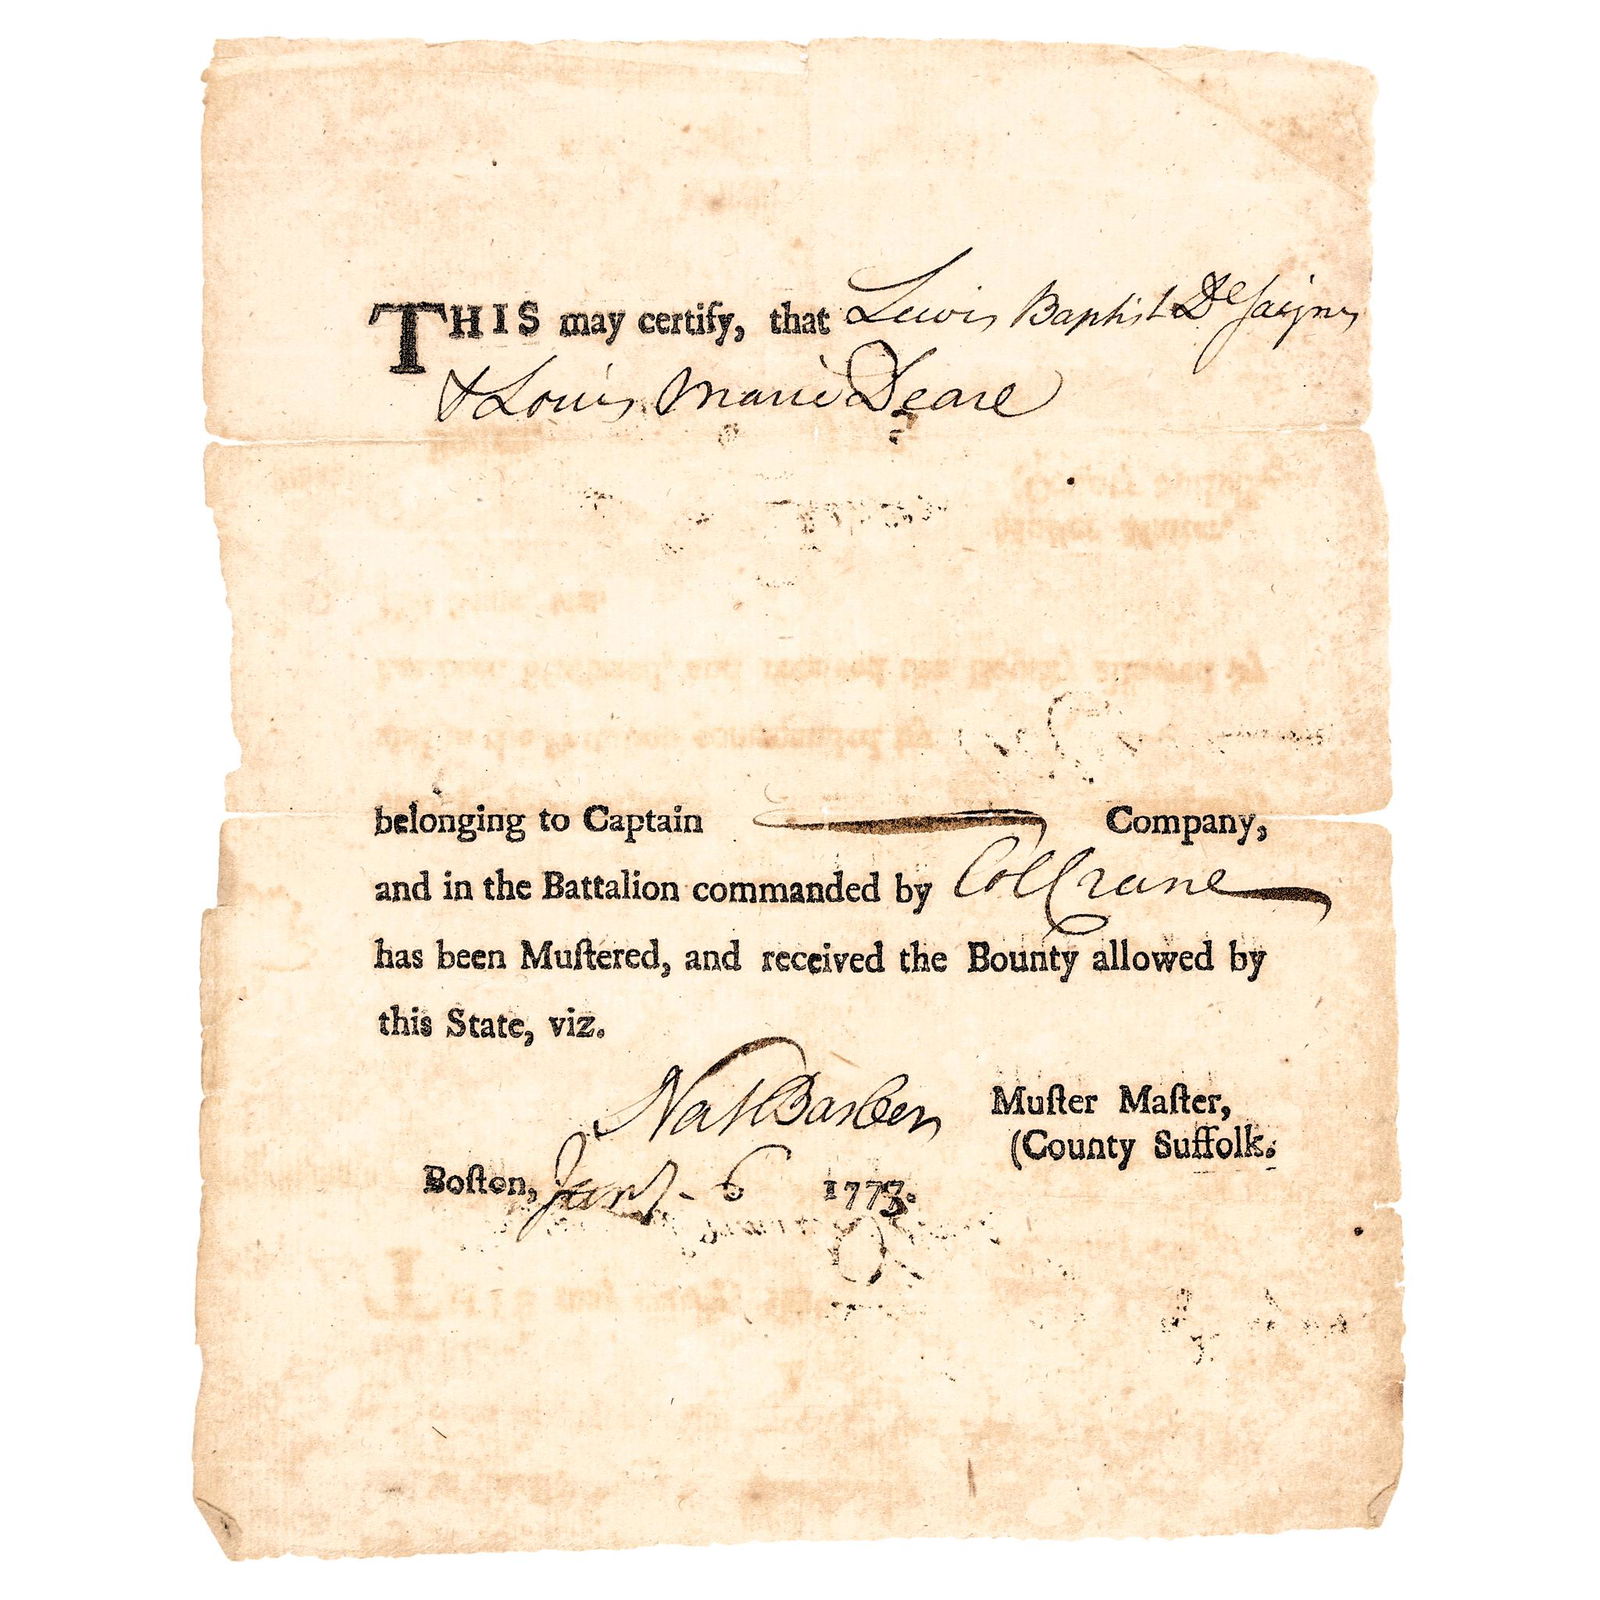 THIS may certify, that Lewis Baptist Desaignes
& Louis Marie Deare
belonging to Captain Company,
and in the Battalion commanded by Col Crane
has been Muſtered, and received the Bounty allowed by
this State, viz.
Nat Barber Muſter Maſter,
(County Suffolk.
Boſton, Jany - 6 177